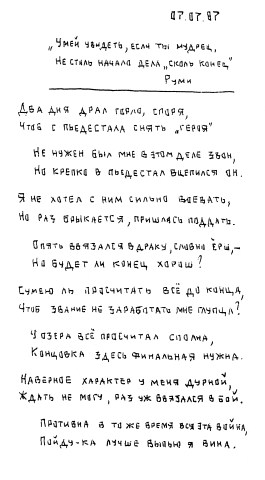 07.07.87
„Умей увидеть, если ты мудрец,
Не столь начало дела, сколь конец"
Руми
Два дня драл горло, споря,
Чтоб с пьедестала снять „героя"
Не нужен был мне в этом деле звон,
Но крепко в пьедестал вцепился он.
Я не хотел с ним сильно воевать,
Но раз брыкается, пришлось поддать.
Опять ввязался в драку, словно ёрш,–
Но будет ли конец хорош?
Сумею ль просчитать всё до конца,
Чтоб звание не заработать мне глупца?
Вчера всё просчитал сполна,
Концовка здесь финальная нужна.
Наверное характер у меня дурной,
Ждать не могу, раз уж ввязался в бой.
Противна в то же время вся эта война,
Пойду-ка лучше выпью я вина.